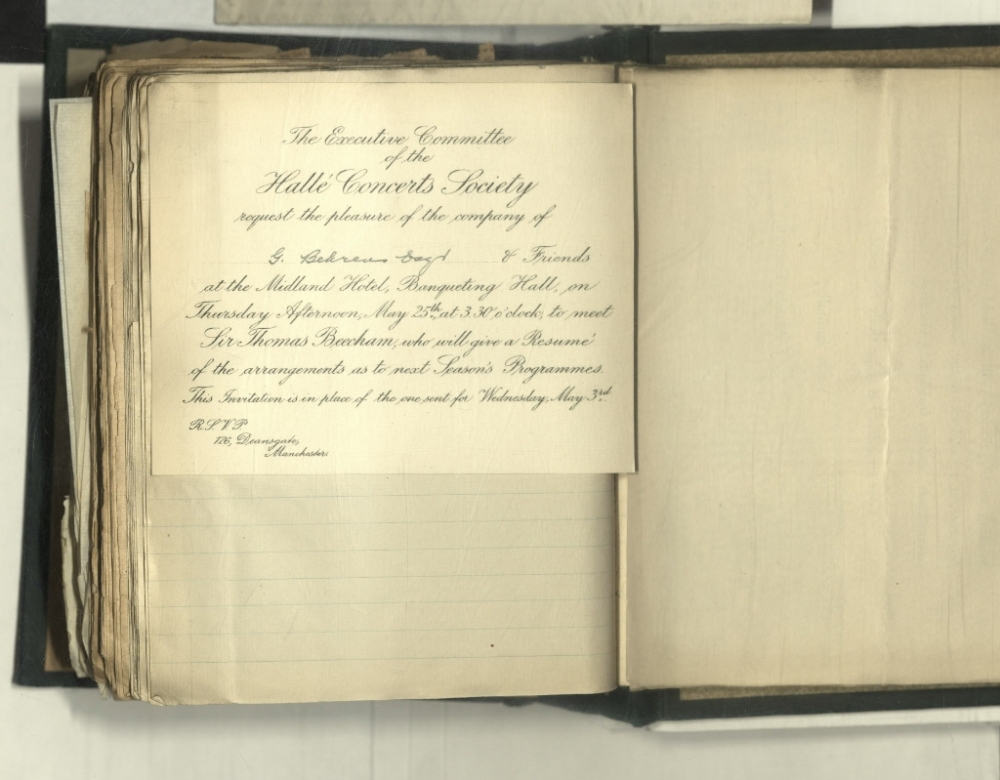 The Executive Committee
of the
Hallé Concerts Society
request the pleasure of the company of
G. Behrens Esqr & Friends
at the Midland Hotel, Banqueting Hall, on
Thursday Afternoon, May 25th, at 3.30 o'clock, to meet
Sir Thomas Beecham, who will give a Resumé
of the arrangements as to next Season's Programmes.
This Invitation is in place of the one sent for Wednesday, May 3rd.
R.S.V.P
126, Deansgate,
Manchester.